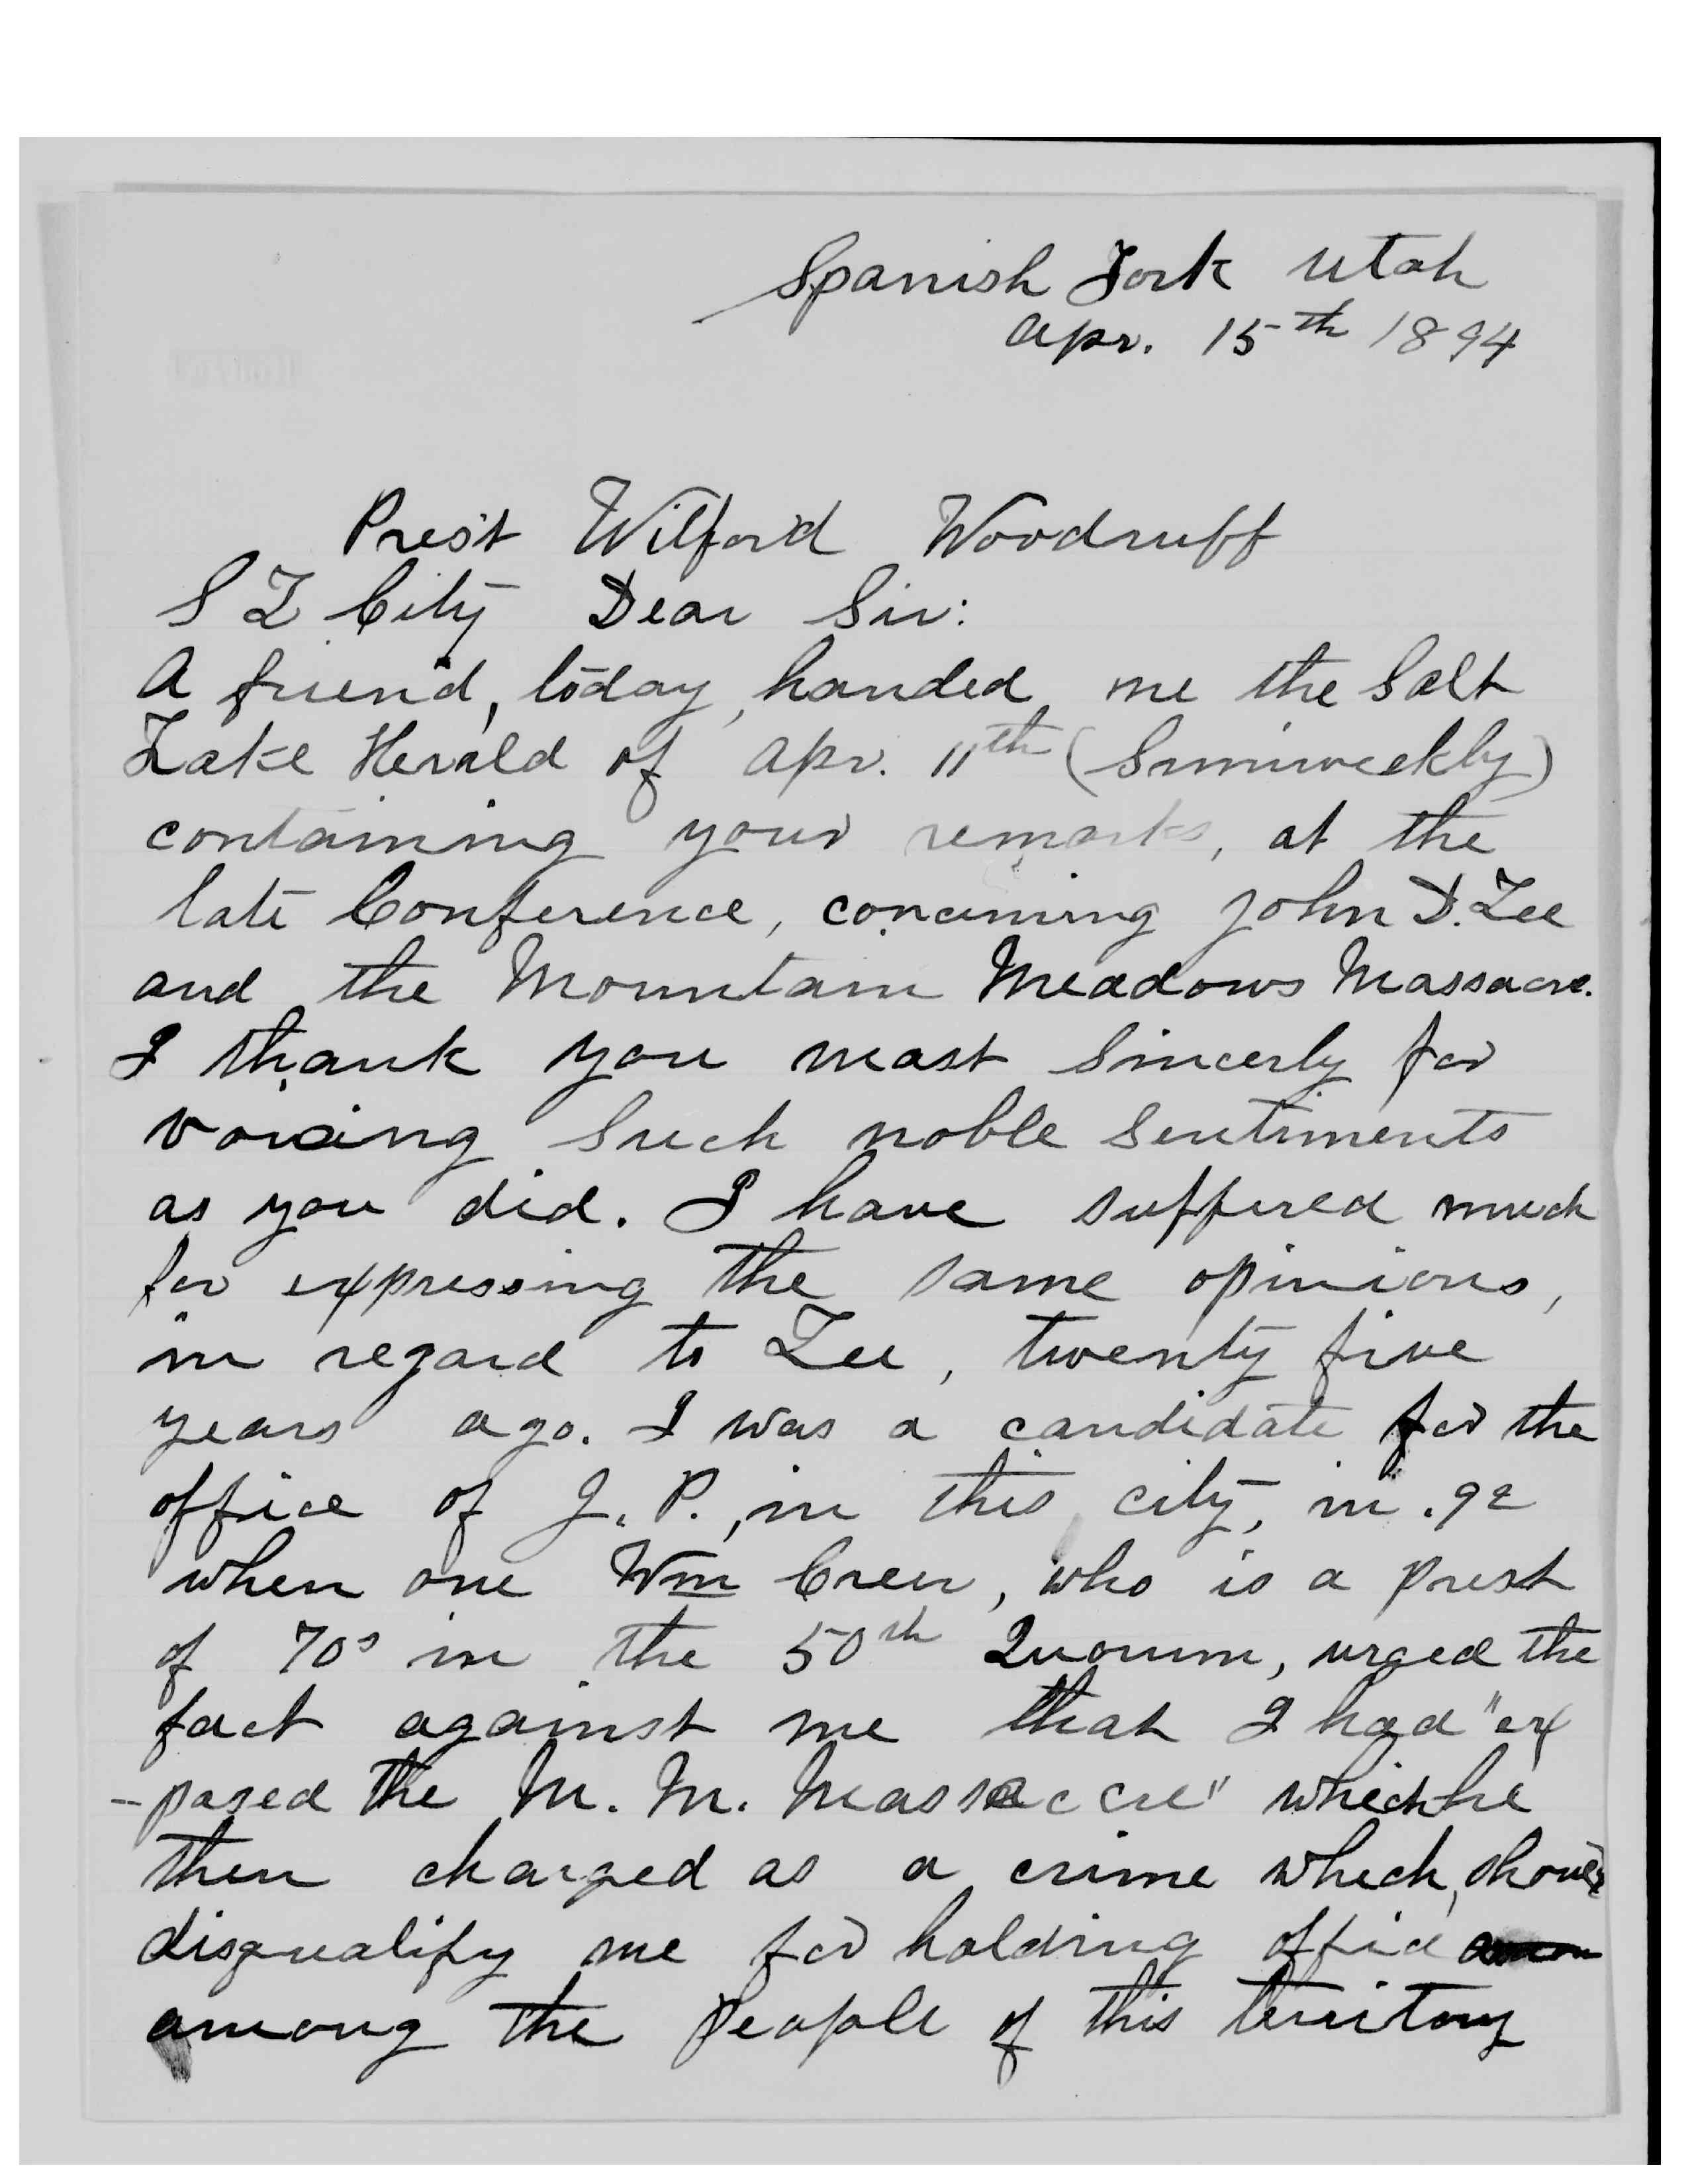 Spanish Fork Utah
Apr. 15th 1894
Pres't Wilford Woodruff
S L City Dear Sir:
A friend, today, handed me the Salt
Lake Herald of Apr. 11th (Semiweekly)
containing your remarks, at the
late Conference, concerning John D. Lee
and the Mountain Meadows Massacre.
I thank you most sincerly for
voicing such noble sentiments
as you did. I have suffered much
for expressing the same opinions,
in regard to Lee, twenty five
years ago. I was a candidate for the
office of J. P., in this city, in .92
when one Wm Creer, who is a prest
of 70s in the 50th Quorum, urged the
fact against me that I had "ex
-posed the M. M. Massaccre" which he
then charged as a crime which, should
disqualify me for holding office
among the people of this territory